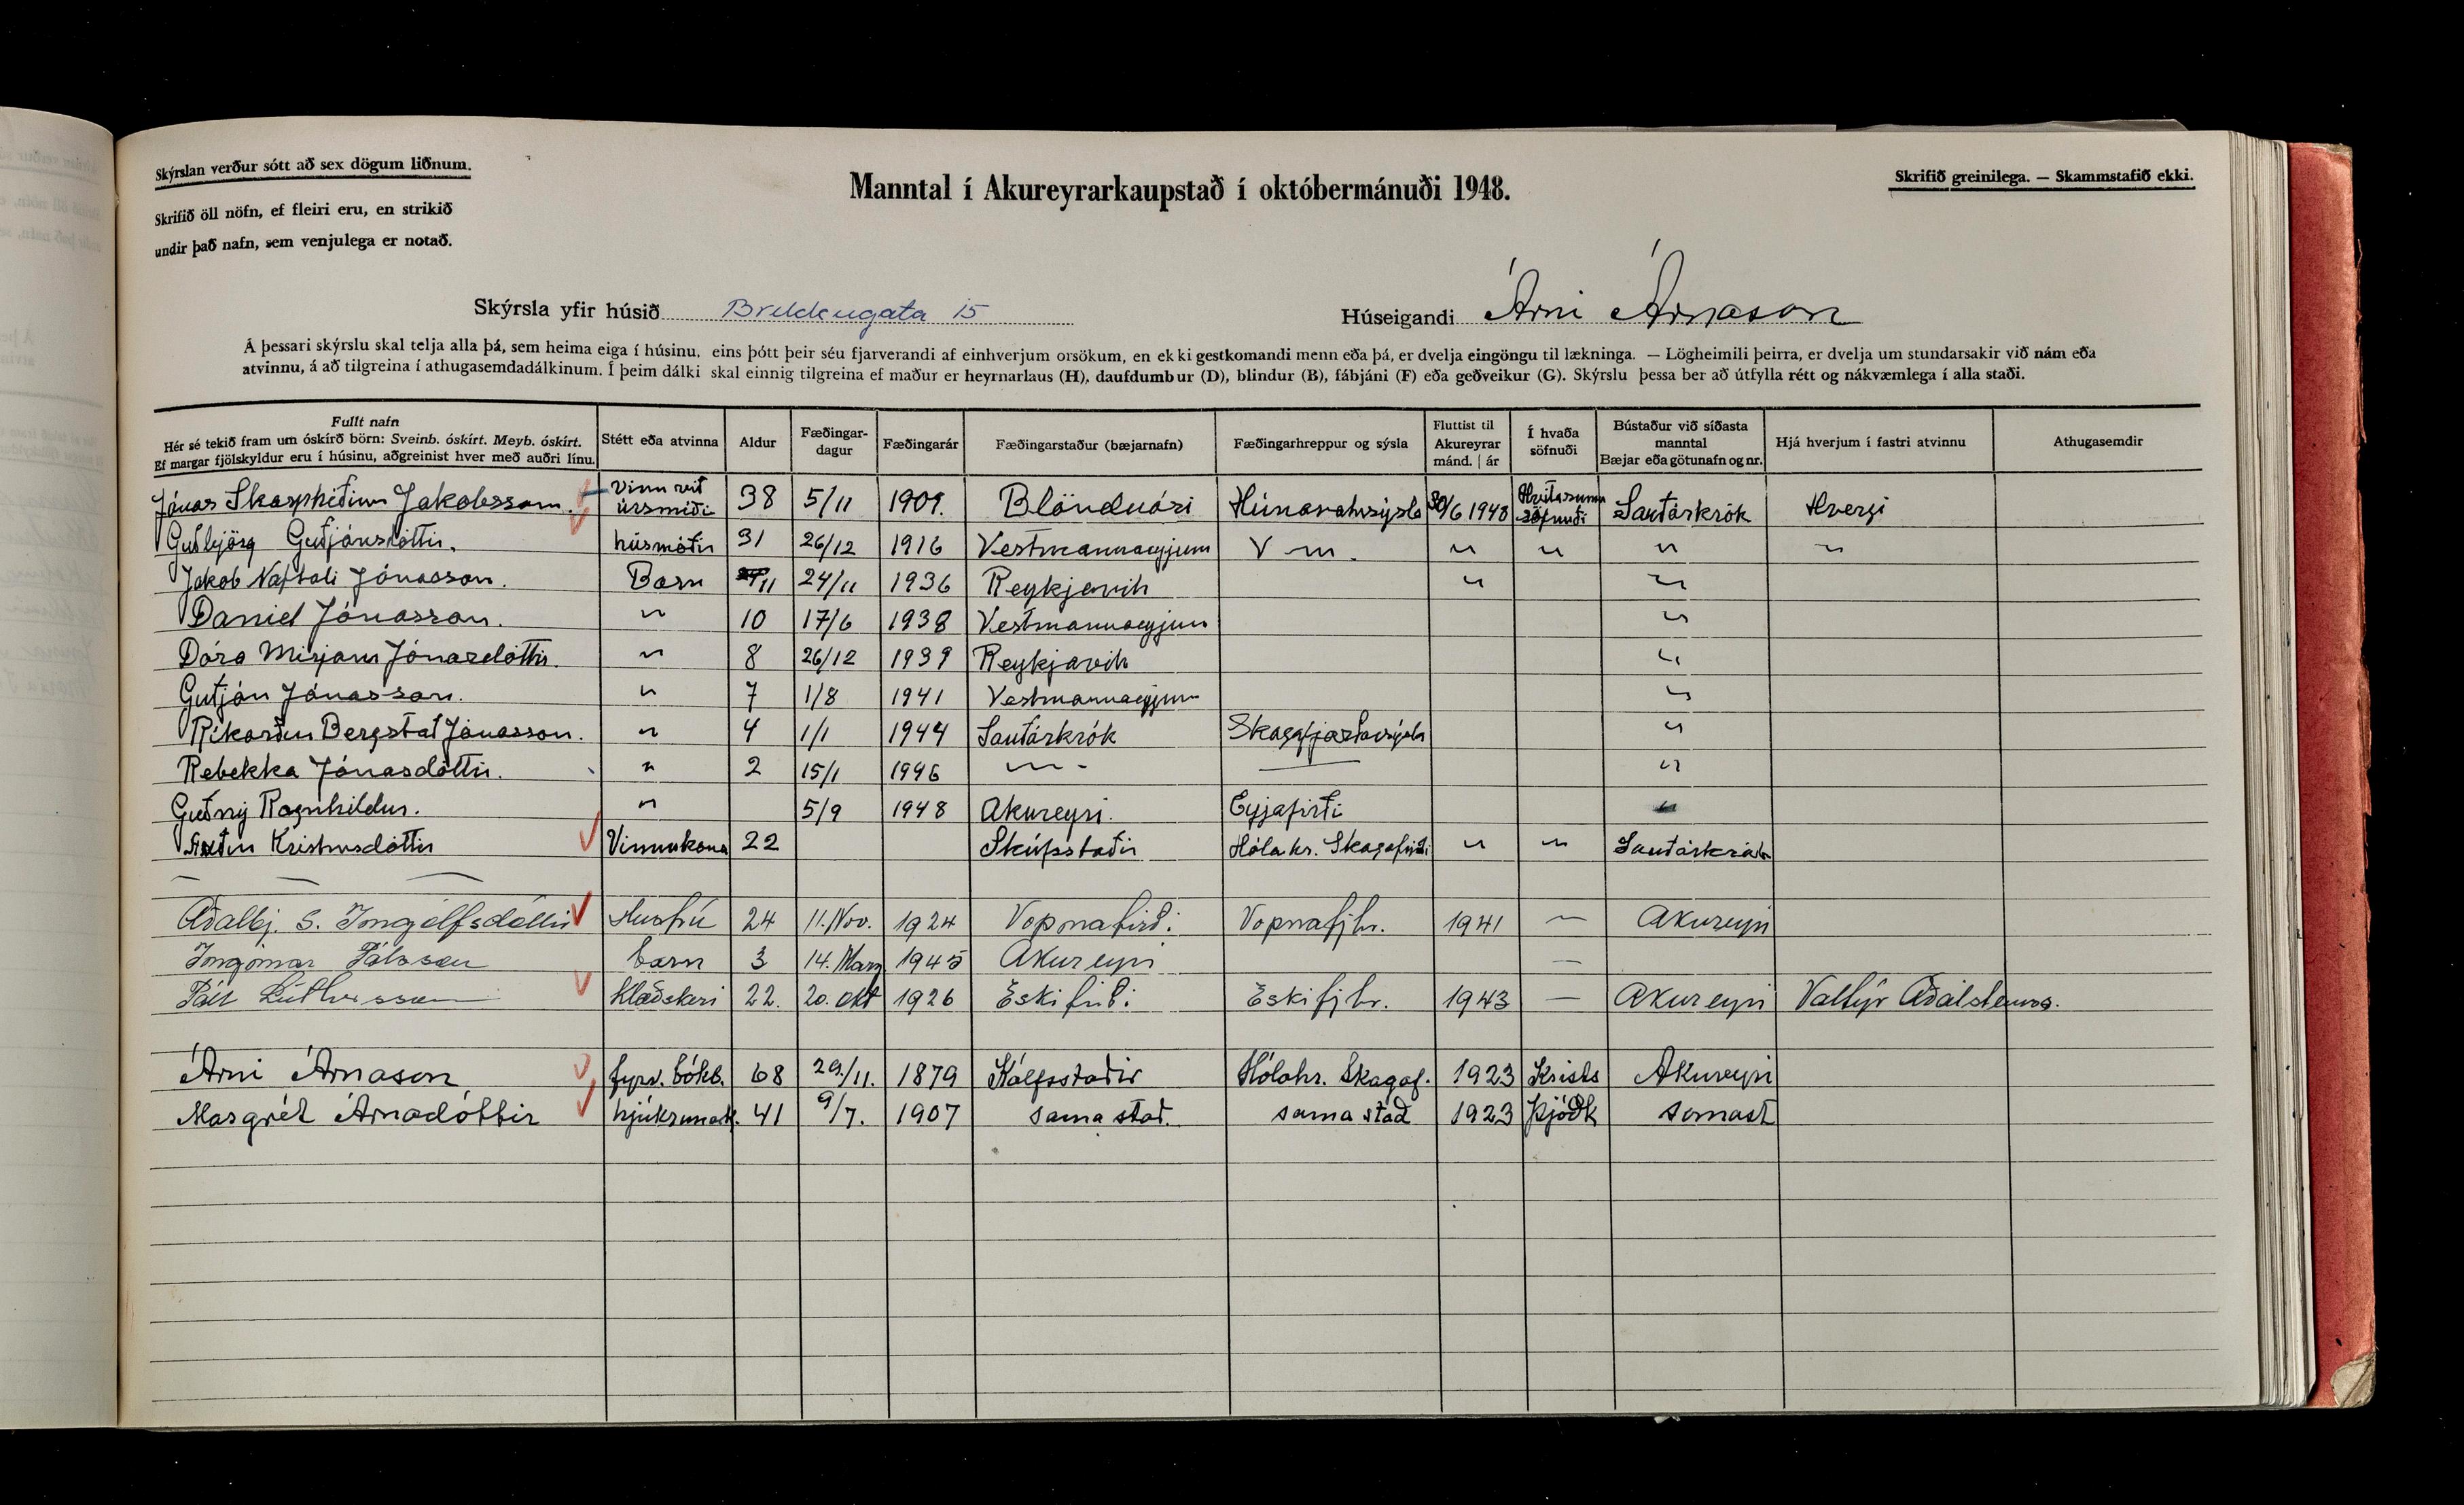 Skýrslan verður sótt að sex dögum liðnum.
Skrifið öll nöfn, ef fleiri eru, en strikið
undir það nafn, sem venjulega er notað.
Manntal í Akureyrarkaupstað í októbermánuði 1948.
Skrifið greinilega. — Skammstafið ekki.
Skýrsla yfir húsið Brekkugata 15
Húseigandi Árni Árnason
Á þessari skýrslu skal telja alla þá, sem heima eiga í húsinu, eins þótt þeir séu fjarverandi af einhverjum orsökum, en ekki gestkomandi menn eða þá, er dvelja eingöngu til lækninga. — Lögheimili þeirra, er dvelja um stundarsakir við nám eða
atvinnu, á að tilgreina í athugasemdadálkinum. Í þeim dálki skal einnig tilgreina ef maður er heyrnarlaus (H), daufdumbur (D), blindur (B), fábjáni (F) eða geðveikur (G). Skýrslu þessa ber að útfylla rétt og nákvæmlega í alla staði.
Fullt nafn
Hér sé tekið fram um óskírð börn: Sveinb. óskírt. Meyb. óskírt.
Ef margar fjölskyldur eru í húsinu, aðgreinist hver með auðri línu.
Stétt eða atvinna
Aldur
Fæðingar-
dagur
Fæðingarár
Fæðingarstaður (bæjarnafn)
Fæðingarhreppur og sýsla
Fluttist til
Akureyrar
mánd. | ár
Í hvaða
söfnuði
Bústaður við síðasta
manntal
Bæjar eða götunafn og nr.
Hjá hverjum í fastri atvinnu
Athugasemdir
Jónas Skarphéðinn Jakobsson. Vinn við úrsmíði 38 5/11 1909. Blönduósi Húnavatnsýsla 30/6 1948 Hvítasunnu söfnuði Sauðárkrók Hvergi
Guðbjörg Guðjónsdóttir. húsmóðir 31 26/12 1916 Vestmannaeyjum V — m. " " " "
Jakob Naftali Jónasson. Barn 11 24/11 1936 Reykjavík " "
Daníel Jónasson. " 10 17/6 1938 Vestmannaeyjum "
Dóra Mirjam Jónasdóttir. " 8 26/12 1939 Reykjavík "
Guðjón Jónasson. " 7 1/8 1941 Vestmannaeyjum "
Ríkarður Bergstað Jónasson. " 4 1/1 1944 Sauðárkrók Skagafjarðarsýsla "
Rebekka Jónasdóttir. " 2 15/1 1946 " — "
Guðný Ragnhildur. " 5/9 1948 Akureyri. Eyjafirði "
Kristinsdóttir Vinnukona 22 Skúfsstaðir Hólahr. Skagafirði " " Sauðárkrók
Aðalbj. S. Ingólfsdóttir Húsfrú 24 11. Nóv. 1924 Vopnafirði Vopnafjhr. 1941 — Akureyri
Ingomar Pálsson barn 3 14. Mars 1945 Akureyri —
Páll Lúthersson klæðskeri 22. 20. okt 1926 Eskifirði Eskifjhr. 1943 — Akureyri Valtýr Aðalsteinss.
Árni Árnason fyrv. bókb. 68 29./11. 1879 Kálfsstaðir Hólahr. Skagaf. 1923 Krists Akureyri
Margrét Árnadóttir hjúkrunark. 41 9/7. 1907 sama stað. sama stað 1923 Þjóðk samast